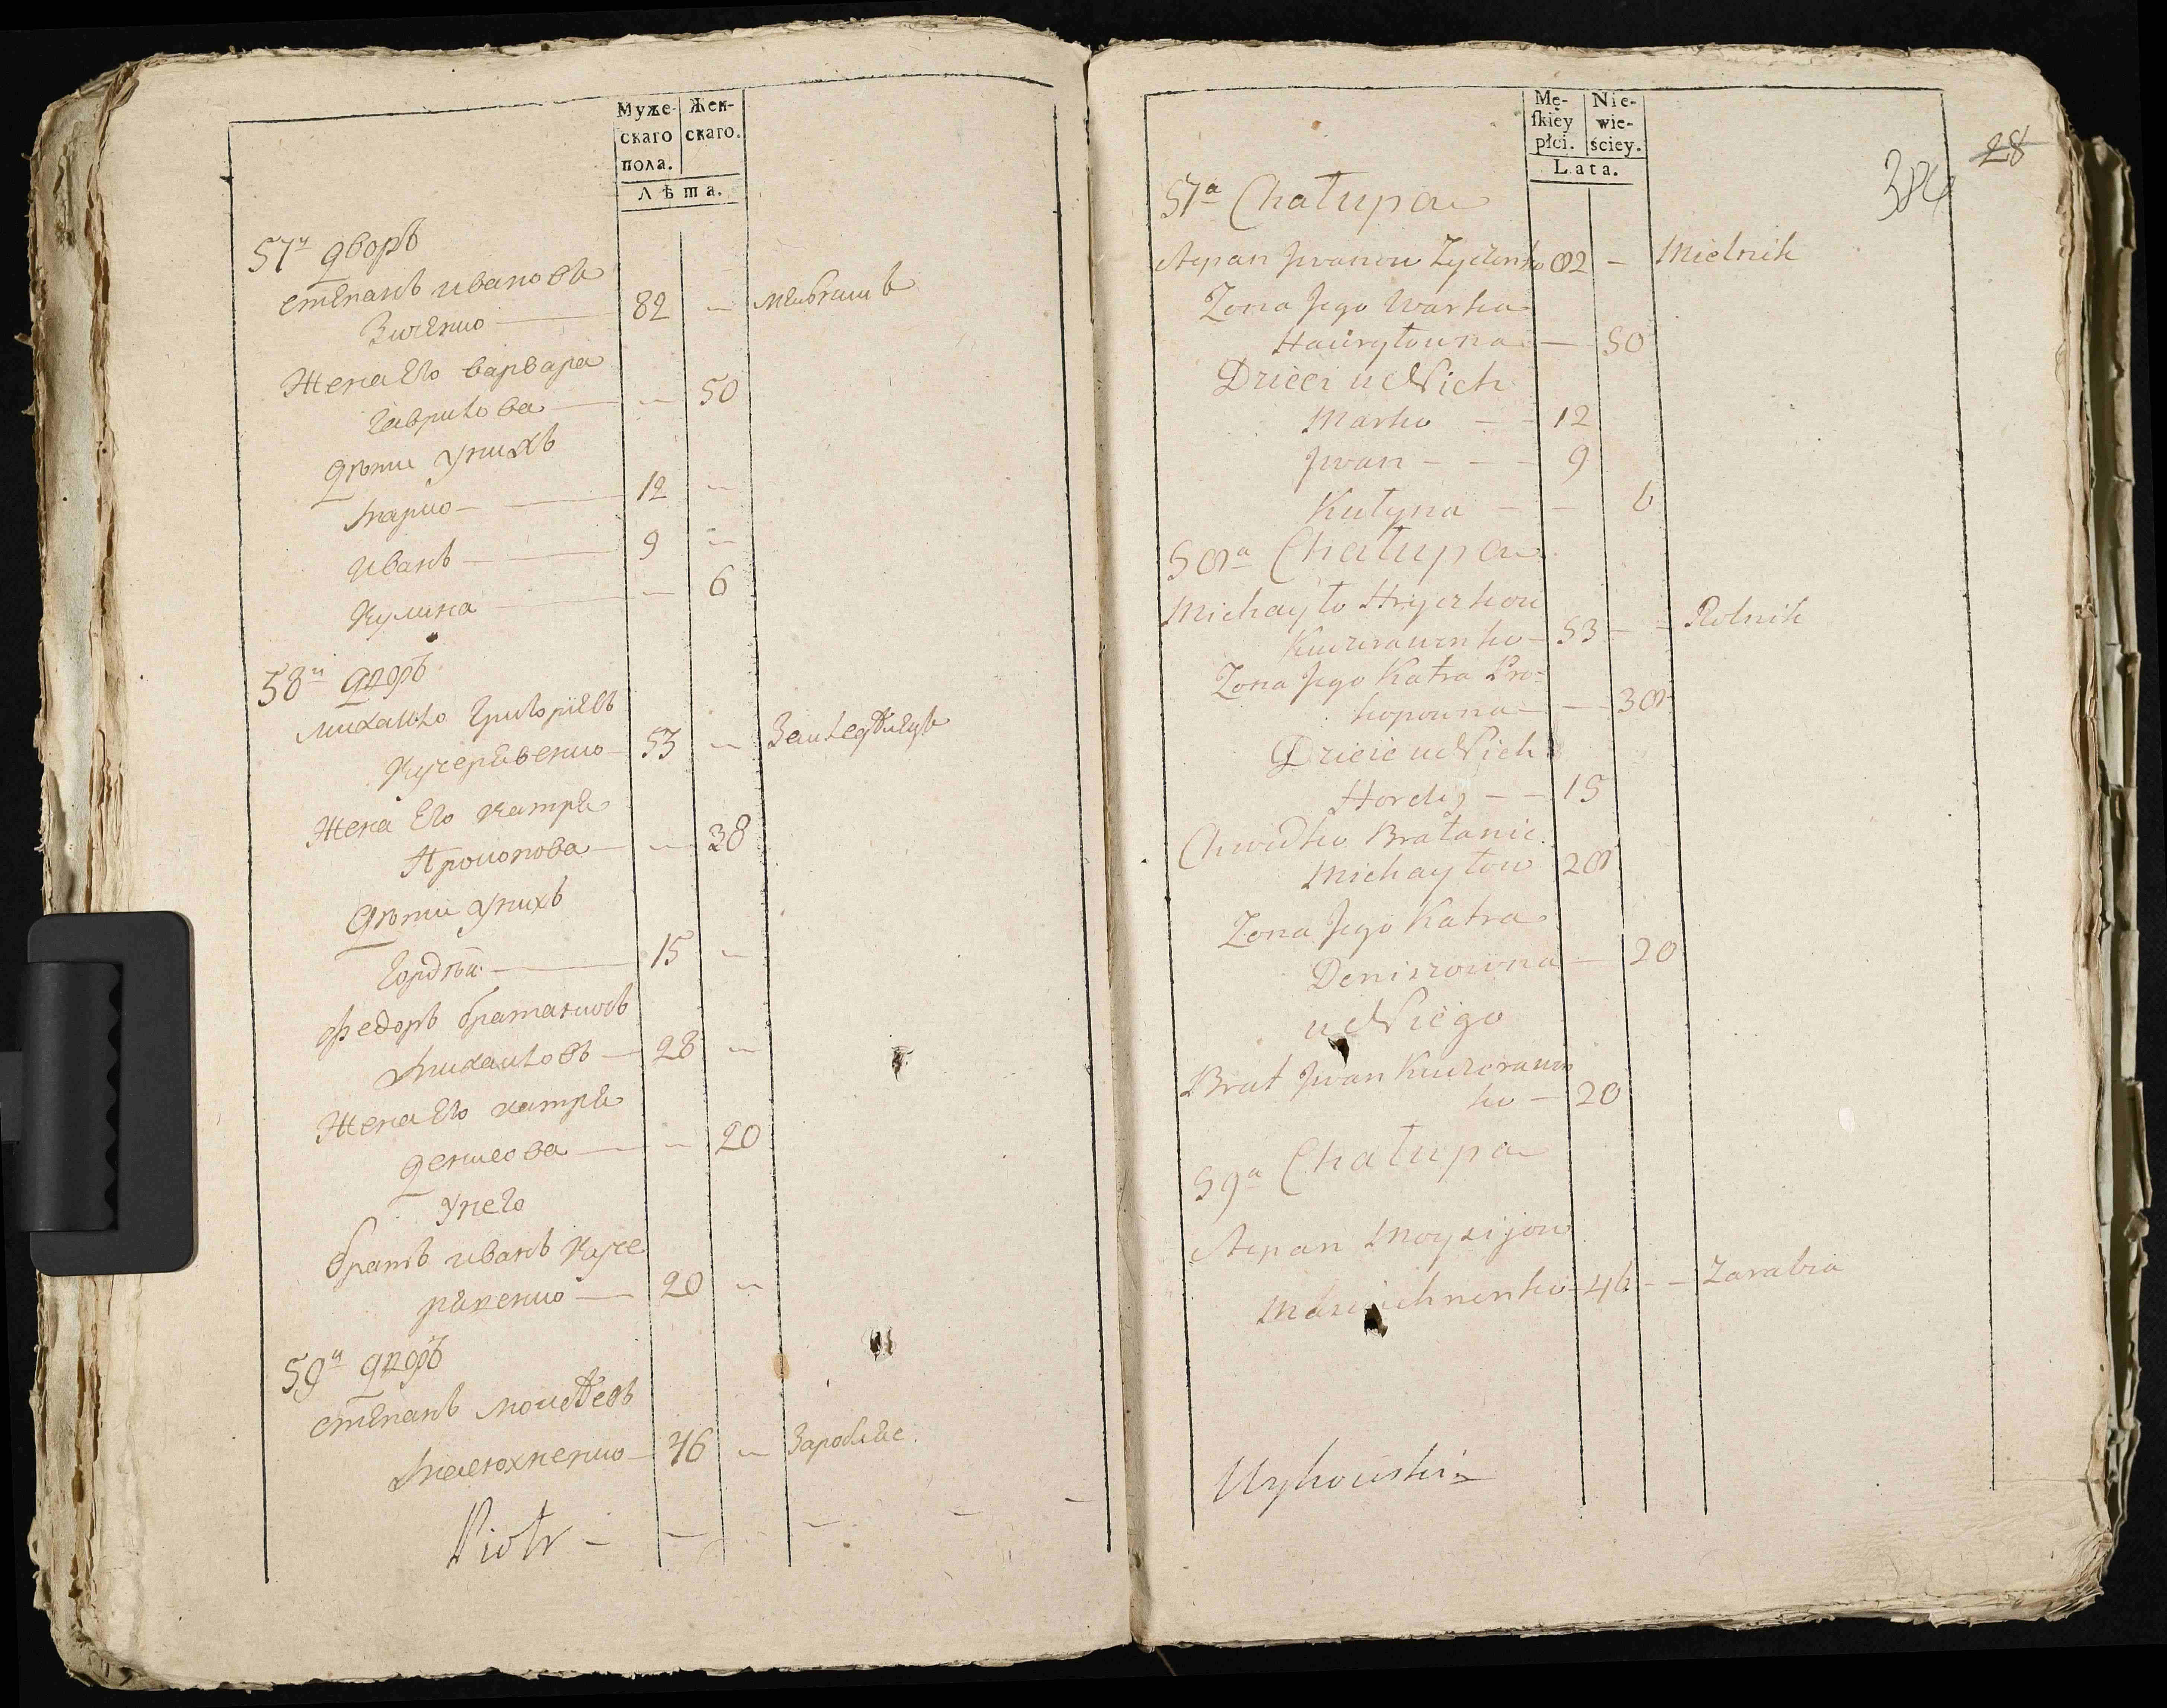 Муже-
скаго
пола.
Жен-
скаго.
Лѣта.
57й дворъ
степанъ ивановъ
Зиченко — 82 — мелникъ
Жена Его варвара
гаврилова — — 50
дѣти унихъ
Марко — 12 —
иванъ — 9 —
Кулина — — 6
58й дворъ
михайло григорiевъ
Кучерявенко — 53 — Землед
жена Его катря
Прокопова — — 38
дѣти унихъ
гордѣй — 15 —
федоръ братаничъ
Михайловъ — 28 —
Жена Его катря
денисова — — 20
унего
братъ иванъ Куче
ренко — 20 —
59й дворъ
степанъ моисѣевъ
— 46 —
Piotr — — — — —
Mę-
ſkiey
płci.
Nie-
wie-
ściey.
Lata.
384 28
57a Chałupa
Stepan Jwanow Zyczenko 82 — Mielnik
Zona Jego Warka
Hawryłowna — 50
Dzieci u Nich
Marko — — 12
Jwan — — — 9
Kulyna — — 6
58a Chałupa
Michayło Hryczkow
Kuczerawenko — 53 — — Rolnik
Zona Jego Katra Pro=
kopowna — — 38
Dziecie u Nich
Hordij — — 15
Chwedko Bratanic
Michayłow 28
Zona Jego Katra
Deniszowna — 20
u Niego
Brat Jwan Kuczerawen
ko — 20
59a Chałupa
Stepan Moysijow
46 — — Zarabia
Wykowski